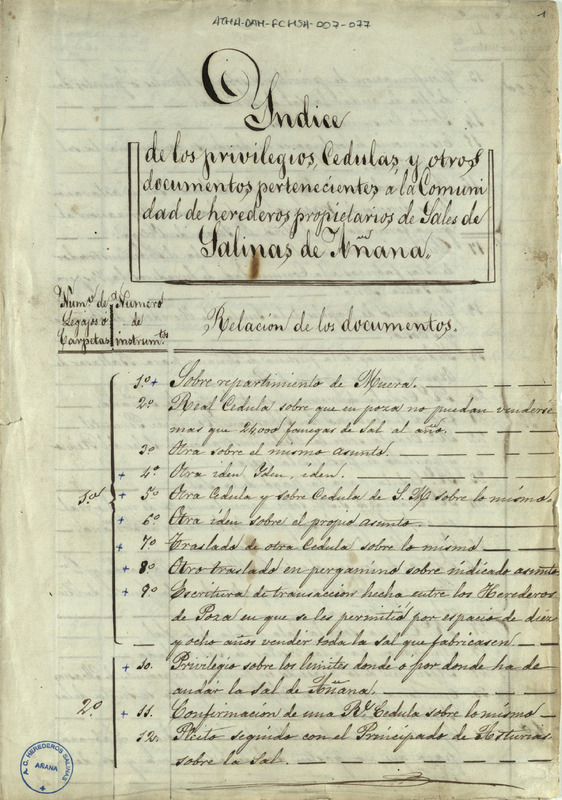 ATHA-DAH-FCHSA-007-077
1
Yndice
de los privilegios, Cedulas, y otros
documentos pertenecientes a la Comuni
dad de herederos propietarios de Sales de
Salinas de Añana.
Num.º de
Legajos o
Carpetas
Numero
de
instrum.tos
Relación de los documentos.
1.º
1.º + Sobre repartimiento de Muera.
2.º Real Cedula sobre que en poza no puedan venderse
mas que 24,000 fanegas de Sal al año.
3.º Otra sobre el mismo asunto.
+ 4.º Otra iden Yden, iden.
+ 5.º Otra Cedula y sobre Cedula de S. M. sobre lo mismo.
+ 6.º Otra iden sobre el propio asunto.
+ 7.º Traslado de otra Cedula sobre lo mismo
+ 8.º Otro traslado en pergamino sobre indicado asunto
+ 9.º Escritura de transaccion hecha entre los Herederos
de Poza en que se les permitió por espacio de diez
y ocho años vender toda la sal que fabricasen
2.º
+ 10. Privilegio sobre los limites donde o por donde ha de
andar la sal de Añana.
+ 11. Confirmacion de una Rl. Cedula sobre lo mismo
12. Pleito seguido con el Principado de Asturias
sobre la Sal.
A. C. HEREDEROS SALINAS
AÑANA